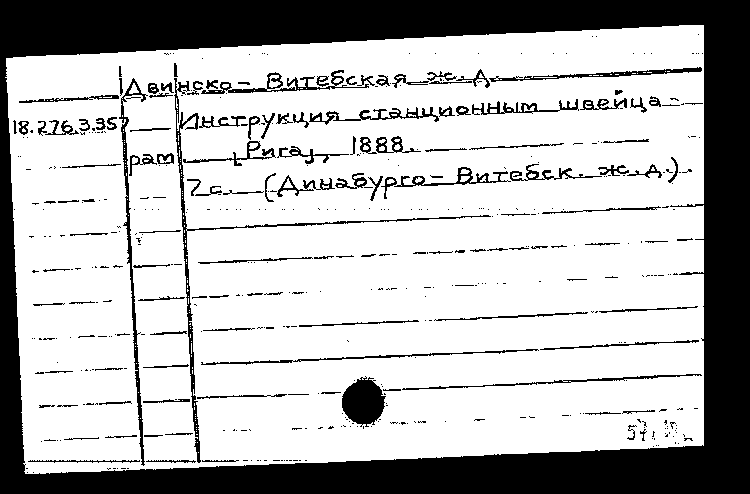 Двинско- Витебская ж. д.
18.276.3.357 Инструкция станционным швейца-
рам [Рига], 1888.
7 с. (Динабурго- Витебск. ж. д.).